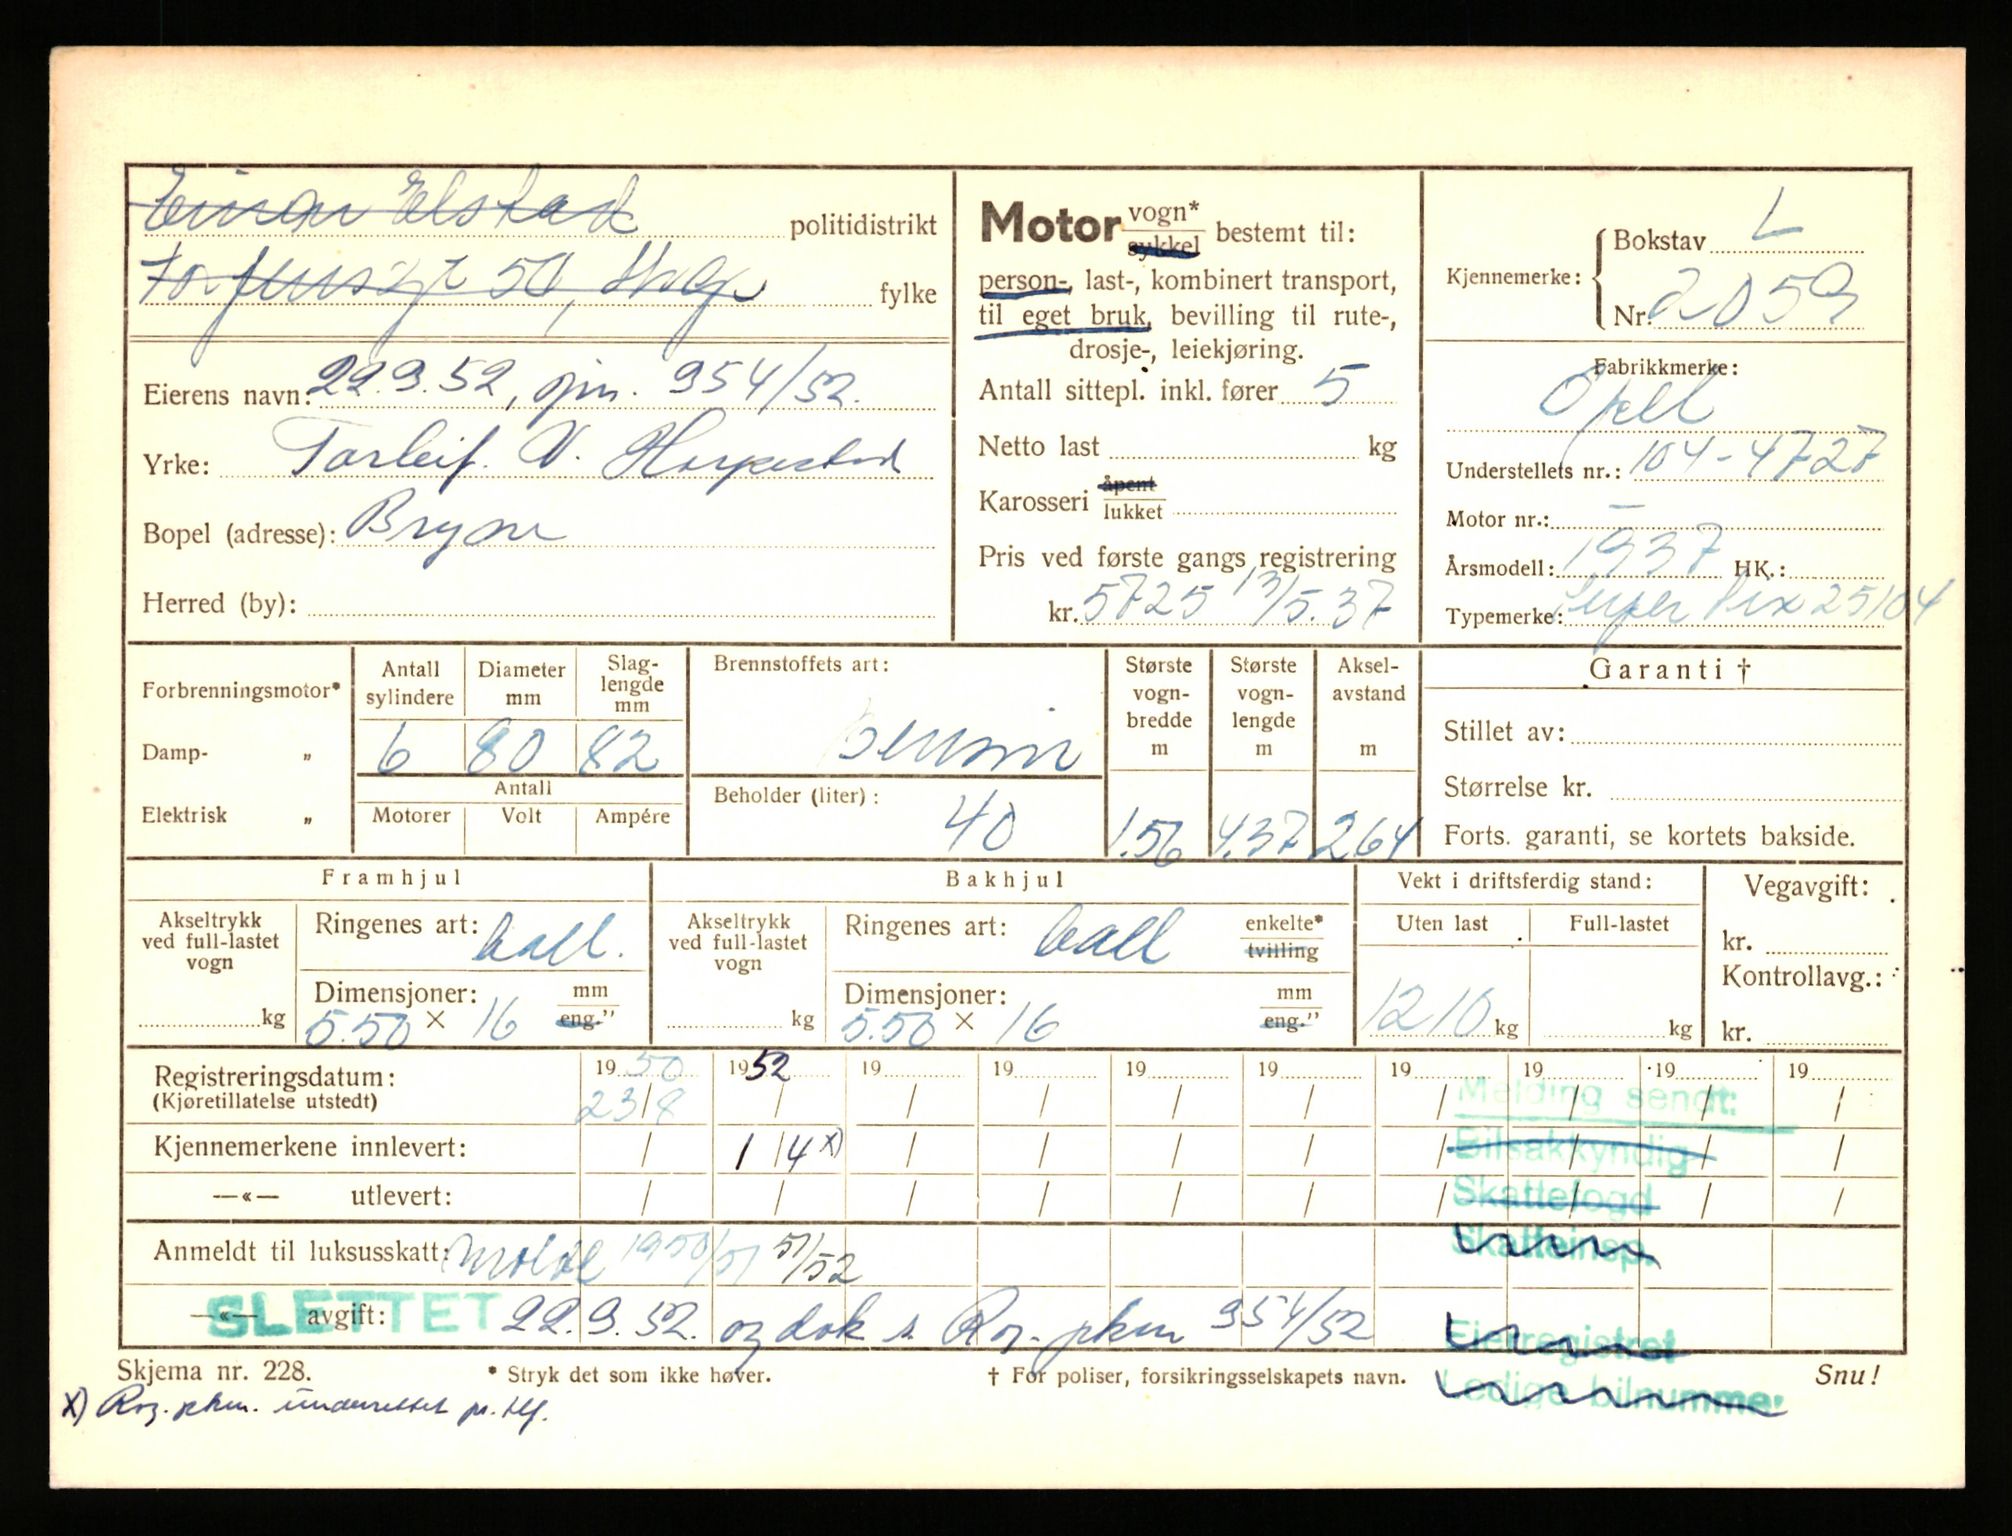 Einar Elstad politidistrikt
50, fylke
Eierens navn: 22.9.52, gjen. 954/52.
Yrke: Torleif V.
Bopel (adresse): Bryne
Herred (by):
Motor vogn* sykkel bestemt til:
person-, last-, kombinert transport,
til eget bruk, bevilling til rute-,
drosje-, leiekjøring.
Antall sittepl. inkl. fører 5
Netto last kg
Karosseri åpent lukket
Pris ved første gangs registrering
kr. 5725 13/5.37
Kjennemerke: Bokstav L
Nr. 2059
Fabrikkmerke:
Opel
Understellets nr.: 104-4727
Motor nr.: —
Årsmodell: 1937 HK.:
Typemerke: Super Six 25/104
Forbrenningsmotor*
Damp- „
Elektrisk „
Antall sylindere 6
Diameter mm 80
Slag-lengde mm 82
Antall
Motorer Volt Ampére
Brennstoffets art:
Bensin
Beholder (liter): 40
Største vogn-bredde m 1.56
Største vogn-lengde m 4.37
Aksel-avstand m 264
Garanti †
Stillet av:
Størrelse kr.
Forts. garanti, se kortets bakside.
Framhjul
Akseltrykk ved full-lastet vogn kg
Ringenes art: ball.
Dimensjoner: 5.50 × 16 mm eng."
Bakhjul
Akseltrykk ved full-lastet vogn kg
Ringenes art: ball enkelte* tvilling
Dimensjoner: 5.50 × 16 mm eng."
Vekt i driftsferdig stand:
Uten last Full-lastet
1210 kg kg
Vegavgift:
kr.
Kontrollavg.:
kr.
Registreringsdatum: 1950 1952 19 19 19 19 19 19 19 19
(Kjøretillatelse utstedt) 23/8 / / / / / / / / /
Melding sendt:
Kjennemerkene innlevert: / 1/4 x) / / / / / / / /
Bilsakkyndig
—«— utlevert: / / / / / / / / / /
Skattefogd
Skatteinsp.
Anmeldt til luksusskatt: Molde 1950/51 51/52
—«— avgift: SLETTET 22.9.52. og dok s. Rog. pkm 954/52
Eierregistret
Ledige bilnummer
Skjema nr. 228. * Stryk det som ikke høver. † For poliser, forsikringsselskapets navn. Snu!
x) Rog. pkm. underrettet pr. tlf.